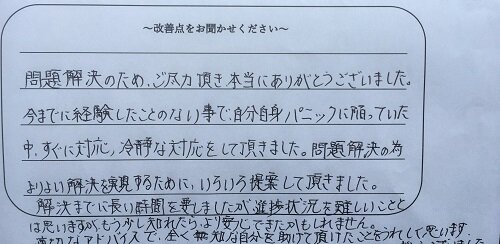 ～改善点をお聞かせください～
問題解決のため、ご尽力頂き本当にありがとうございました。
今までに経験したことのない事で、自分自身パニックに陥っていた
中、すぐに対応、冷静な対応をして頂きました。問題解決の為
よりよい解決を実現するために、いろいろ提案して頂きました。
解決までに長い時間を要しましたが進捗状況を難しいことと
は思いますが、もう少し知れたら、より安心できたかもしれません。
適切なアドバイスで、全く無知な自分を助けて頂けたことをうれしく思います。